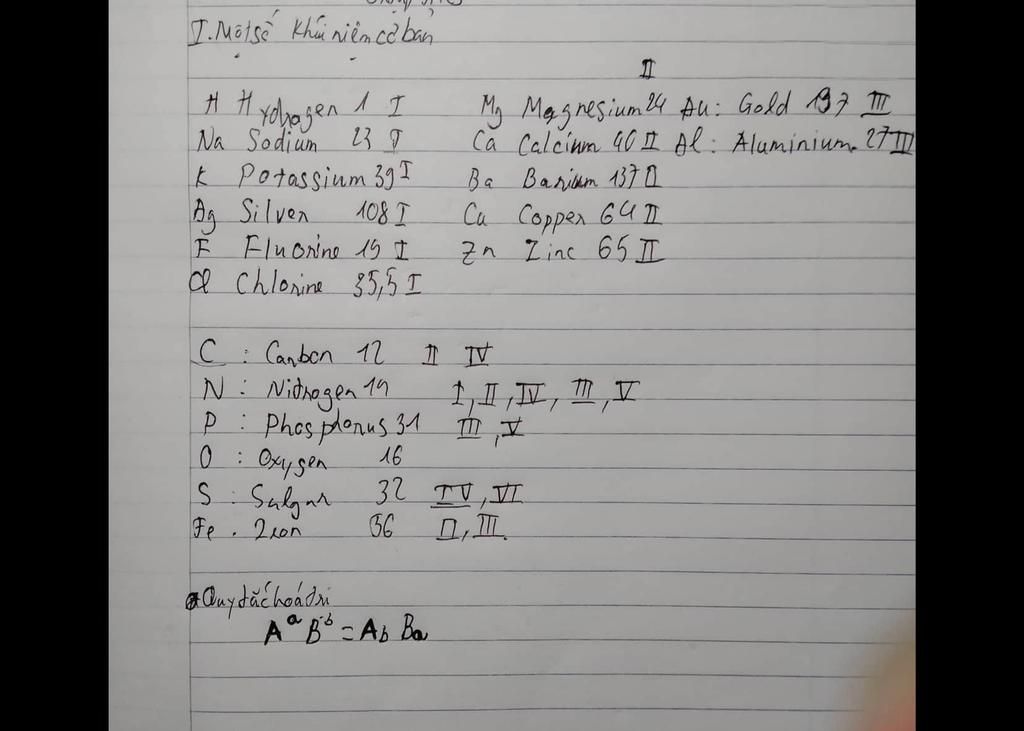 I. Một số khái niệm cơ bản
II
H Hydrogen 1 I Mg Magnesium 24 Au: Gold 197 III
Na Sodium 23 I Ca Calcium 40 II Al: Aluminium 27 III
K Potassium 39 I Ba Barium 137 II
Ag Silver 108 I Cu Copper 64 II
F Fluorine 19 I Zn Zinc 65 II
Cl Chlorine 35,5 I
C : Carbon 12 II IV
N : Nitrogen 14 I, II, IV, III, V
P : Phosphorus 31 III, V
O : Oxygen 16
S : Sulgur 32 IV, VI
Fe . Iron 56 II, III.
Quy tắc hoá trị
A^a B^b = Ab Ba